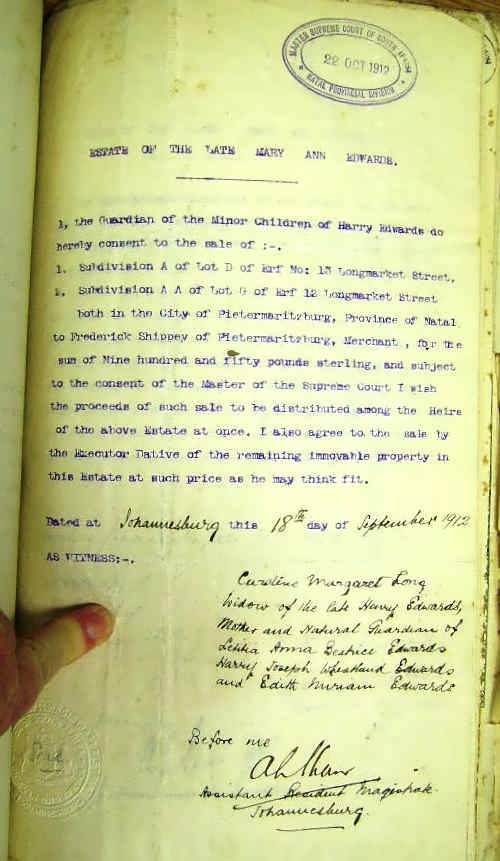 MASTER SUPREME COURT OF SOUTH AFRICA
22 OCT 1912
NATAL PROVINCIAL DIVISION
ESTATE OF THE LATE MARY ANN EDWARDS.
I, the Guardian of the Minor Children of Harry Edwards do
hereby consent to the sale of :-.
1. Subdivision A of Lot D of Erf No: 13 Longmarket Street,
2. Subdivision A A of Lot G of Erf 12 Longmarket Street
both in the City of Pietermaritzburg, Province of Natal
to Frederick Shippey of Pietermaritzburg, Merchant , for the
sum of Nine hundred and fifty pounds sterling, and subject
to the consent of the Master of the Supreme Court I wish
the proceeds of such sale to be distributed among the Heirs
of the above Estate at once. I also agree to the sale by
the Executor Dative of the remaining immovable property in
this Estate at such price as he may think fit.
Dated at Johannesburg this 18TH day of September 1912
AS WITNESS:-.
Caroline Margaret Long
Widow of the late Harry Edwards,
Mother and Natural Guardian of
Letitia Anna Beatrice Edwards
Harry Joseph Wheatland Edwards
and Edith Miriam Edwards
Before me
Assistant Resident Magistrate
Johannesburg.